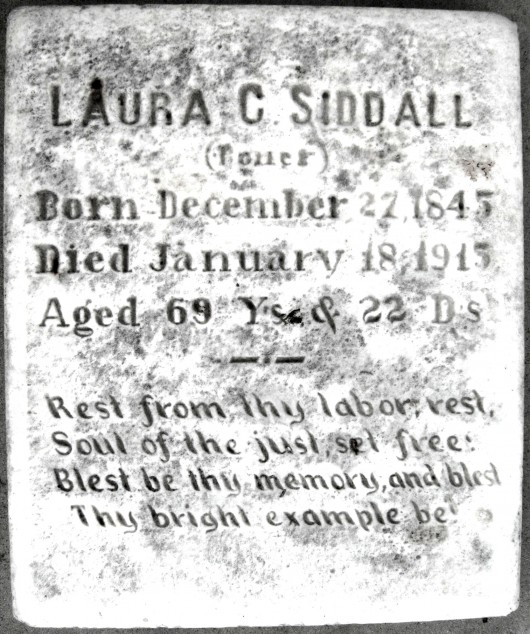 LAURA C. SIDDALL
Born December 27, 1845
Died January 18, 1915
Aged 69 Ys & 22 Ds
Rest from thy labor, rest,
Soul of the just, set free:
Blest be thy memory, and blest
Thy bright example be!